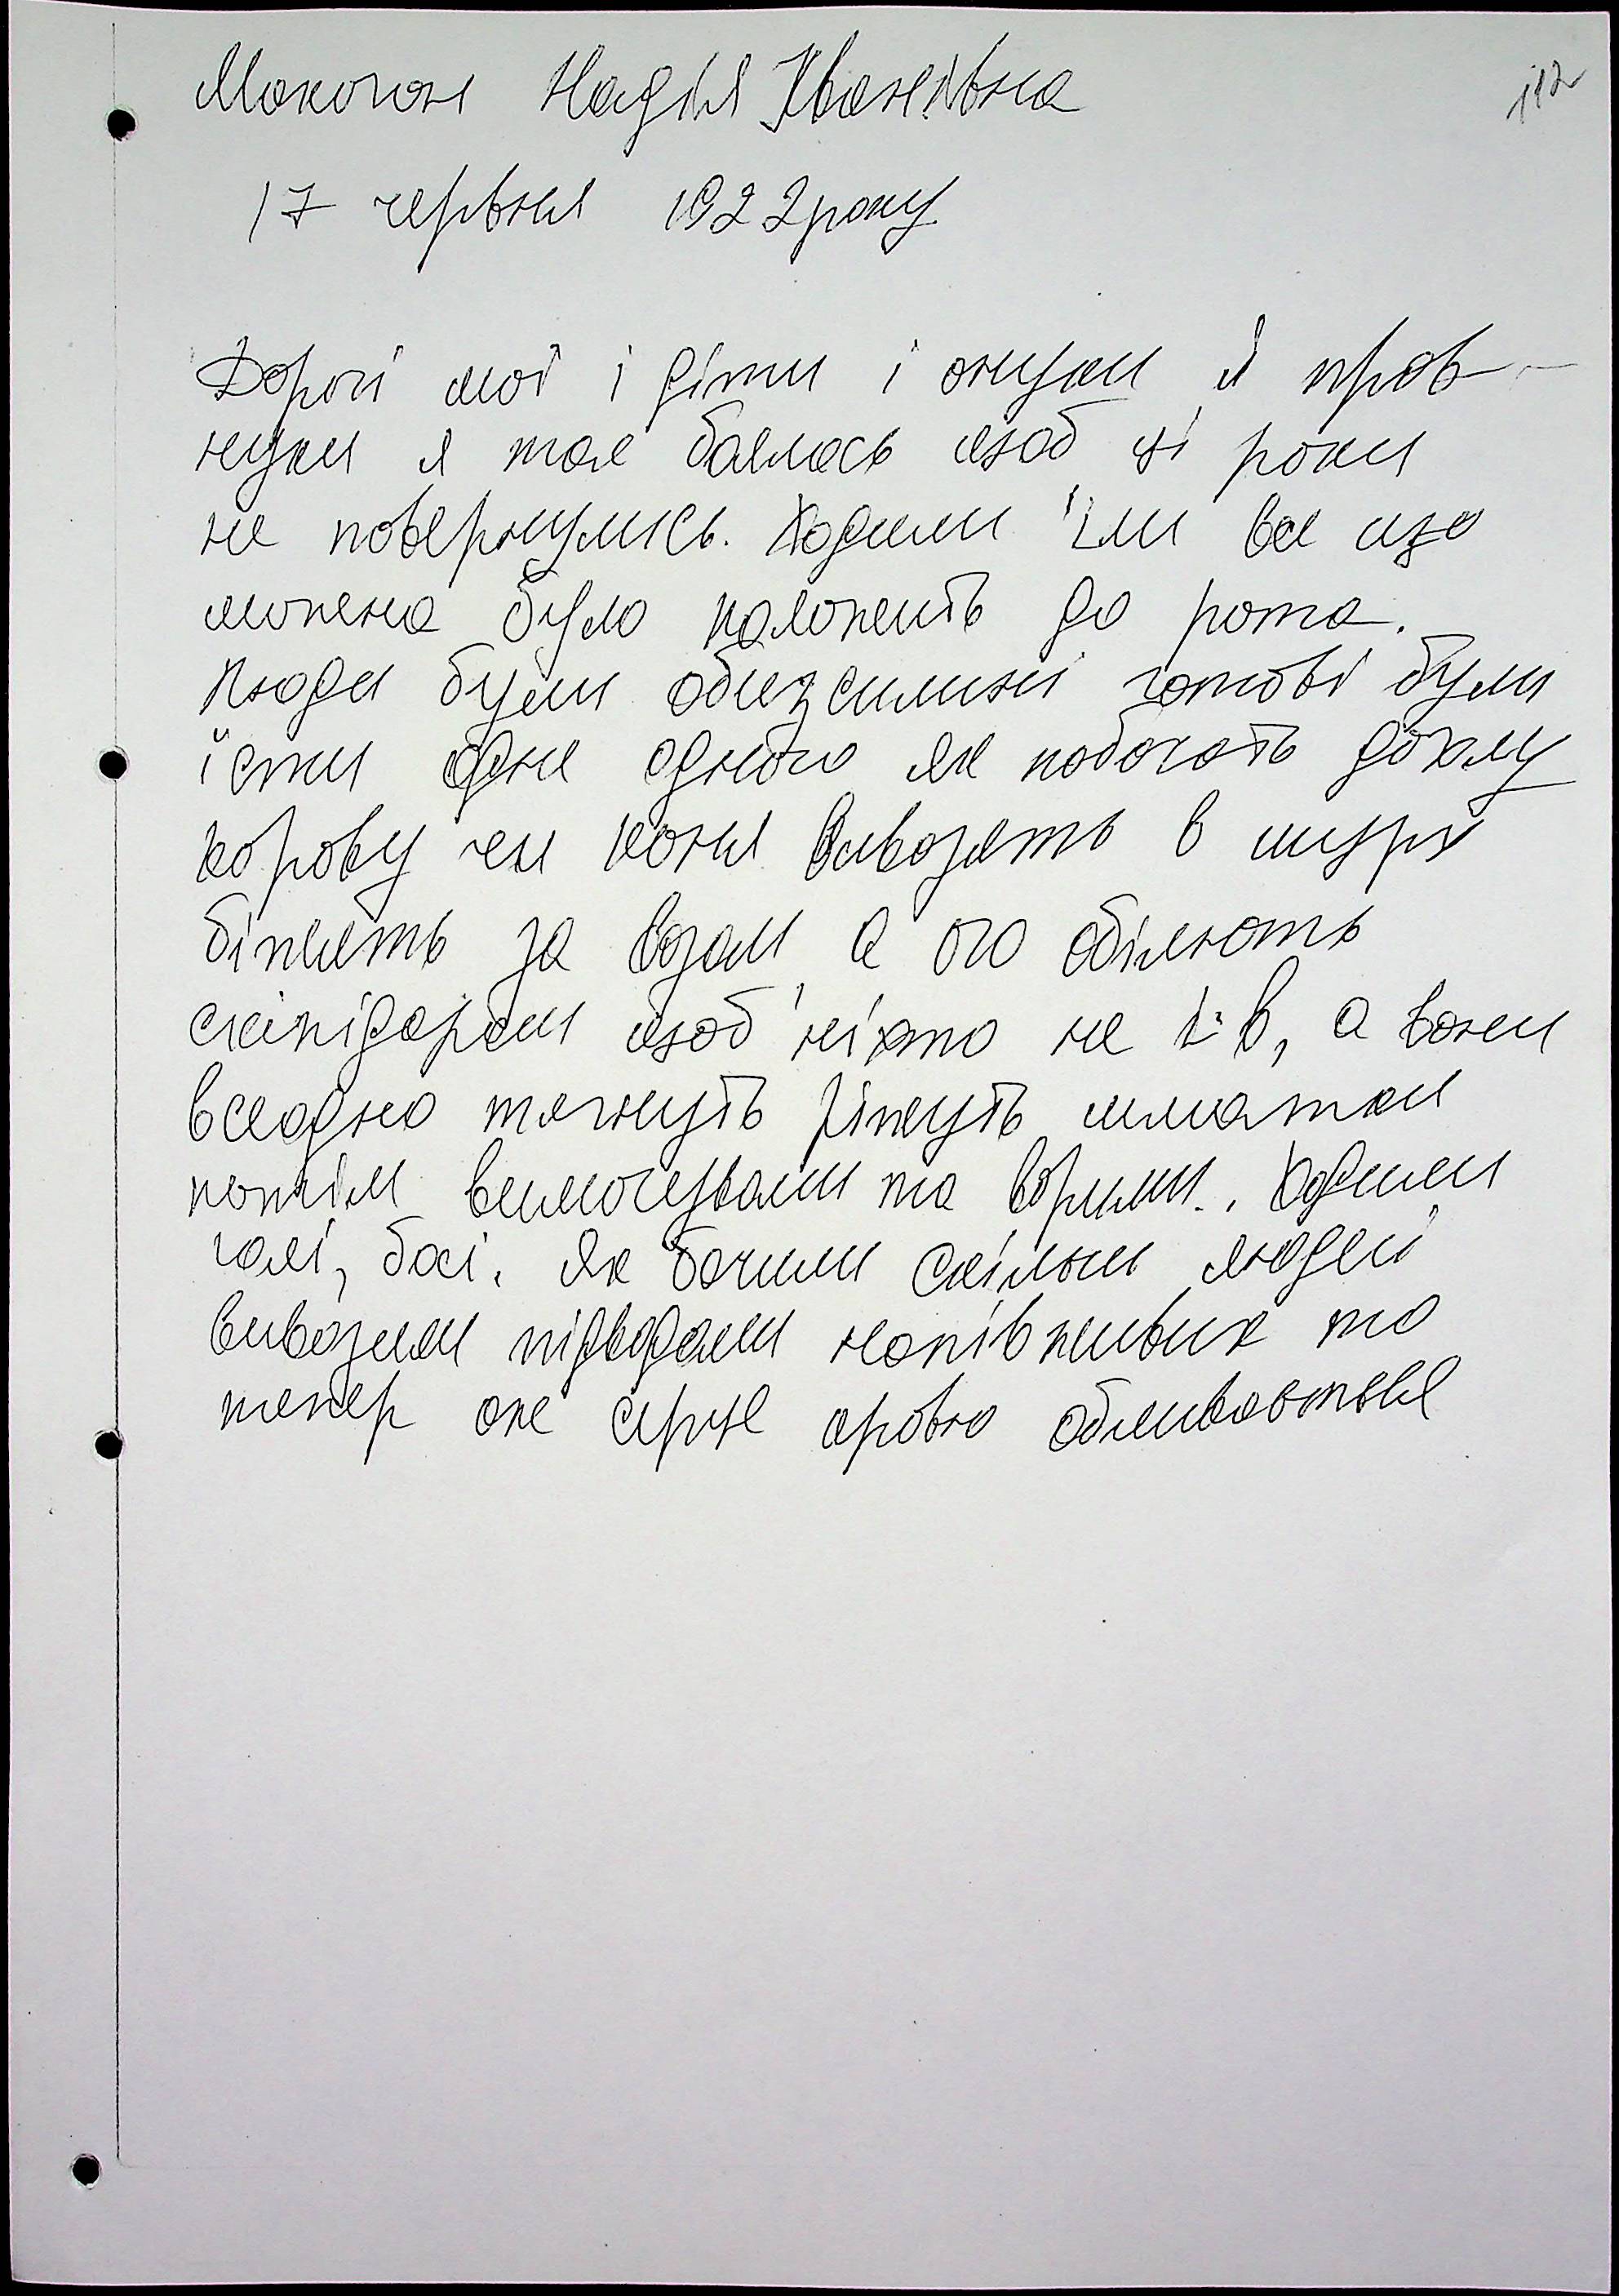 Макогон Надія Іванівна
112
17 червня 1922 року
Дорогі мої і діти і онуки й прав-
нуки я так баялась щоб ці роки
не повернулись. Ходили їли все що
можна було положить до рота.
Люди були обезсилині готові були
їсти одне одного як побачать дохлу
корову чи коня вивозять в шурх
біжять за возом, а ого обілють
скіпідаром щоб ніхто не їв, а вони
всеодно тягнуть ріжуть шматки
потім вимочували та варили. Ходили
голі, босі. Як бачили скільки людей
вивозили підводами напівживих то
тепер аже серце кровю обливаєтьця